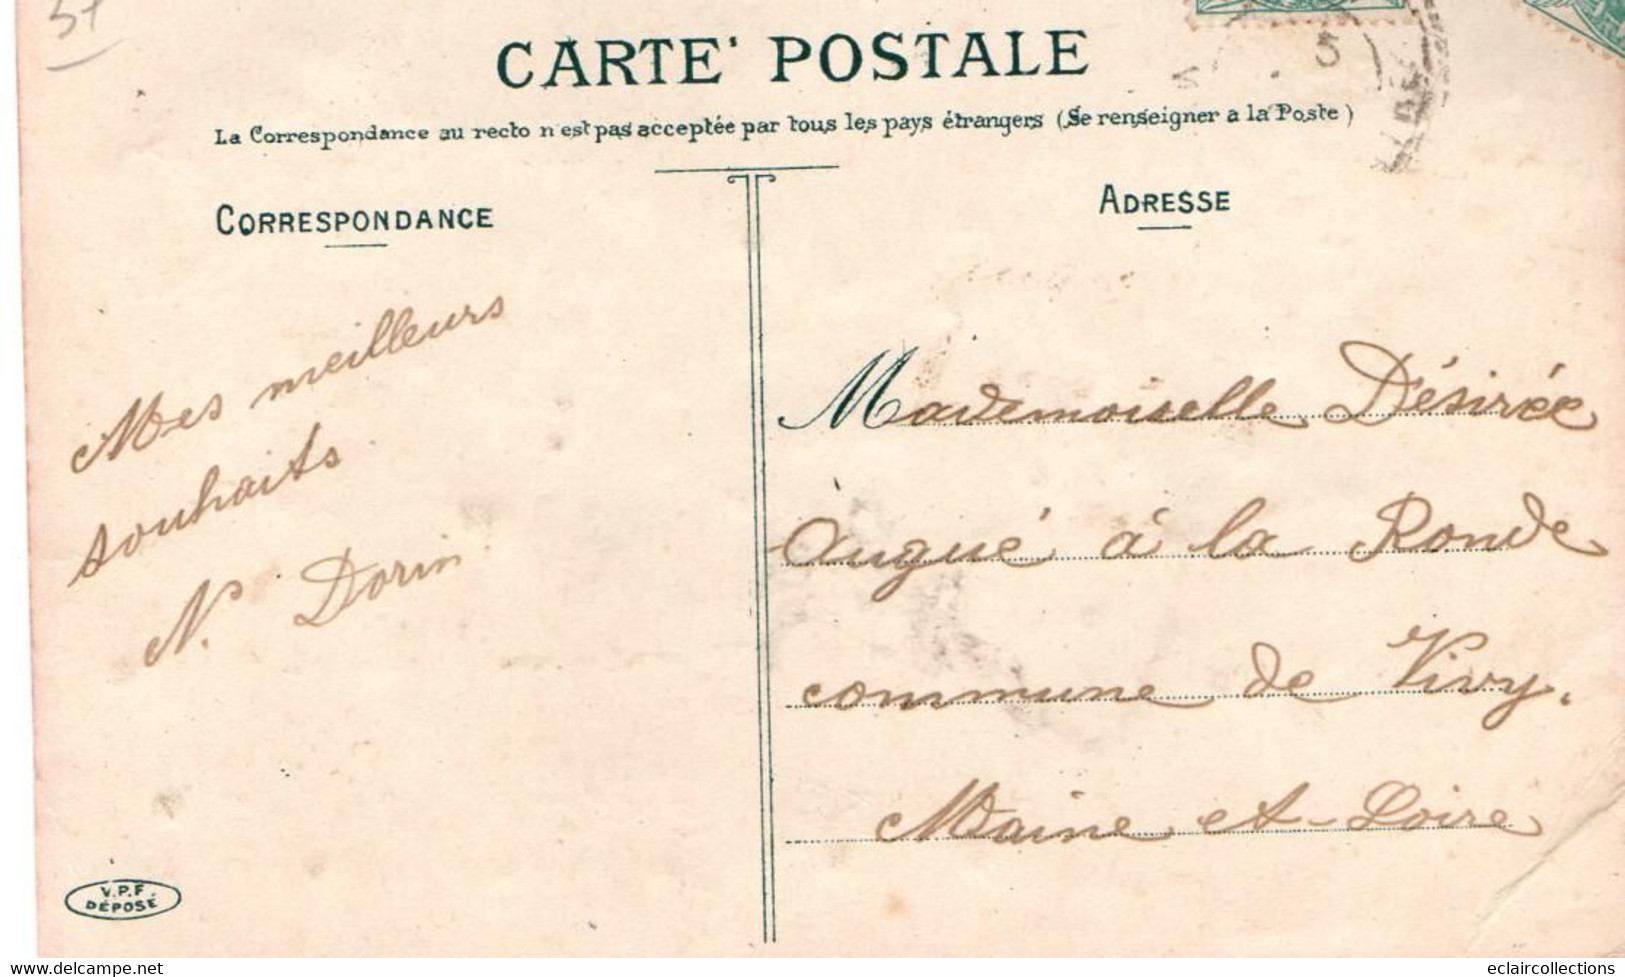 37
CARTE POSTALE
La Correspondance au recto n'est pas acceptée par tous les pays étrangers (Se renseigner a la Poste)
CORRESPONDANCE
Mes meilleurs
souhaits
N. Dorin
ADRESSE
Mademoiselle Désirée
Augué à la Ronde
commune de Vivy.
Maine et-Loire
V.P.F
DÉPOSÉ
5
delcampe.net
eclaircollections